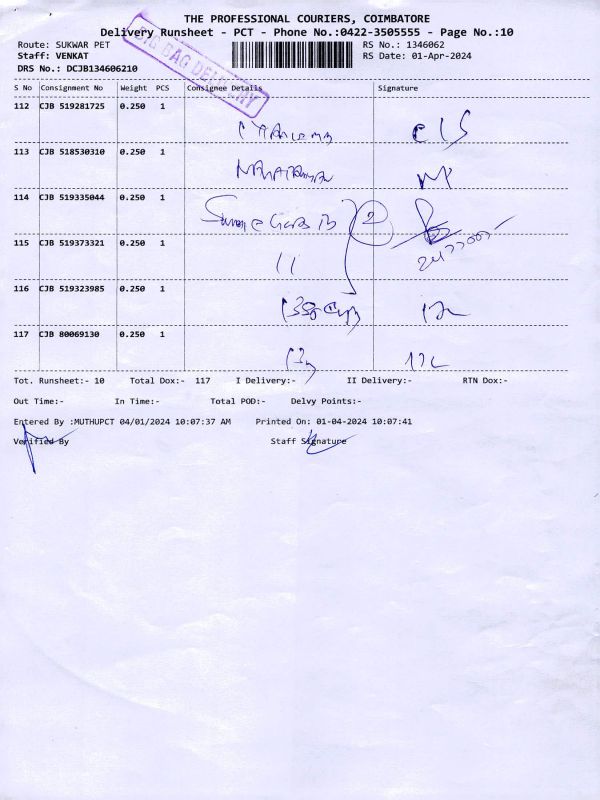 THE PROFESSIONAL COURIERS, COIMBATORE
Delivery Runsheet - PCT - Phone No.:0422-3505555 - Page No.:10
Route: SUKWAR PET
RS No.: 1346062
Staff: VENKAT
RS Date: 01-Apr-2024
DRS No.: DCJB134606210
BIG BAG DELIVERY
S No Consignment No Weight PCS Consignee Details Signature
112 CJB 519281725 0.250 1
113 CJB 518530310 0.250 1
114 CJB 519335044 0.250 1
2
115 CJB 519373321 0.250 1
116 CJB 519323985 0.250 1
117 CJB 80069130 0.250 1
Tot. Runsheet:- 10 Total Dox:- 117 I Delivery:- II Delivery:- RTN Dox:-
Out Time:- In Time:- Total POD:- Delvy Points:-
Entered By :MUTHUPCT 04/01/2024 10:07:37 AM Printed On: 01-04-2024 10:07:41
Verified By Staff Signature